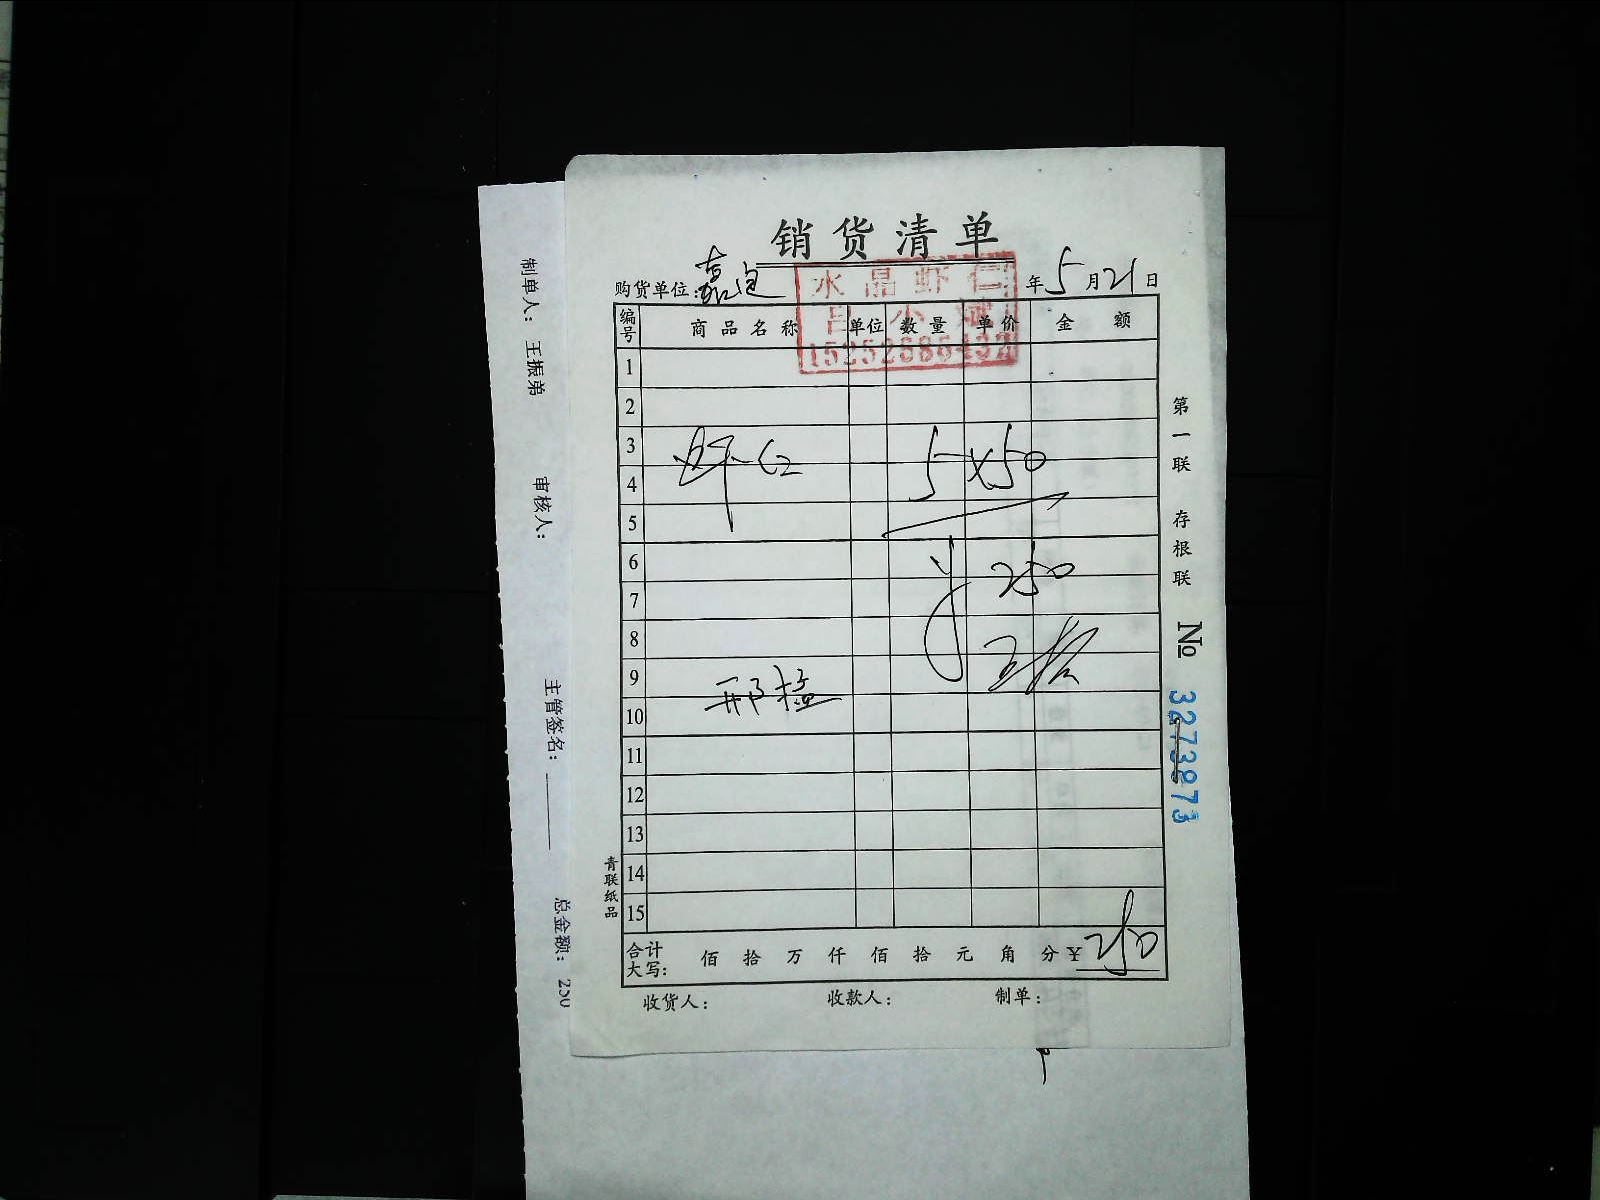 销货清单
购货单位：嘉 年5月21日
水晶虾仁
吕小斌
15252686432
编号 商品名称 单位 数量 单价 金额
1
2
3
虾仁 5×50
4
5
6
¥ 250
7
8
9
10
11
12
13
14
15
合计大写： 佰 拾 万 仟 佰 拾 元 角 分 ¥ 250
收货人： 收款人： 制单：
第一联 存根联
№ 3273973
青联纸品
制单人：王振弟 审核人： 主管签名： 总金额：250